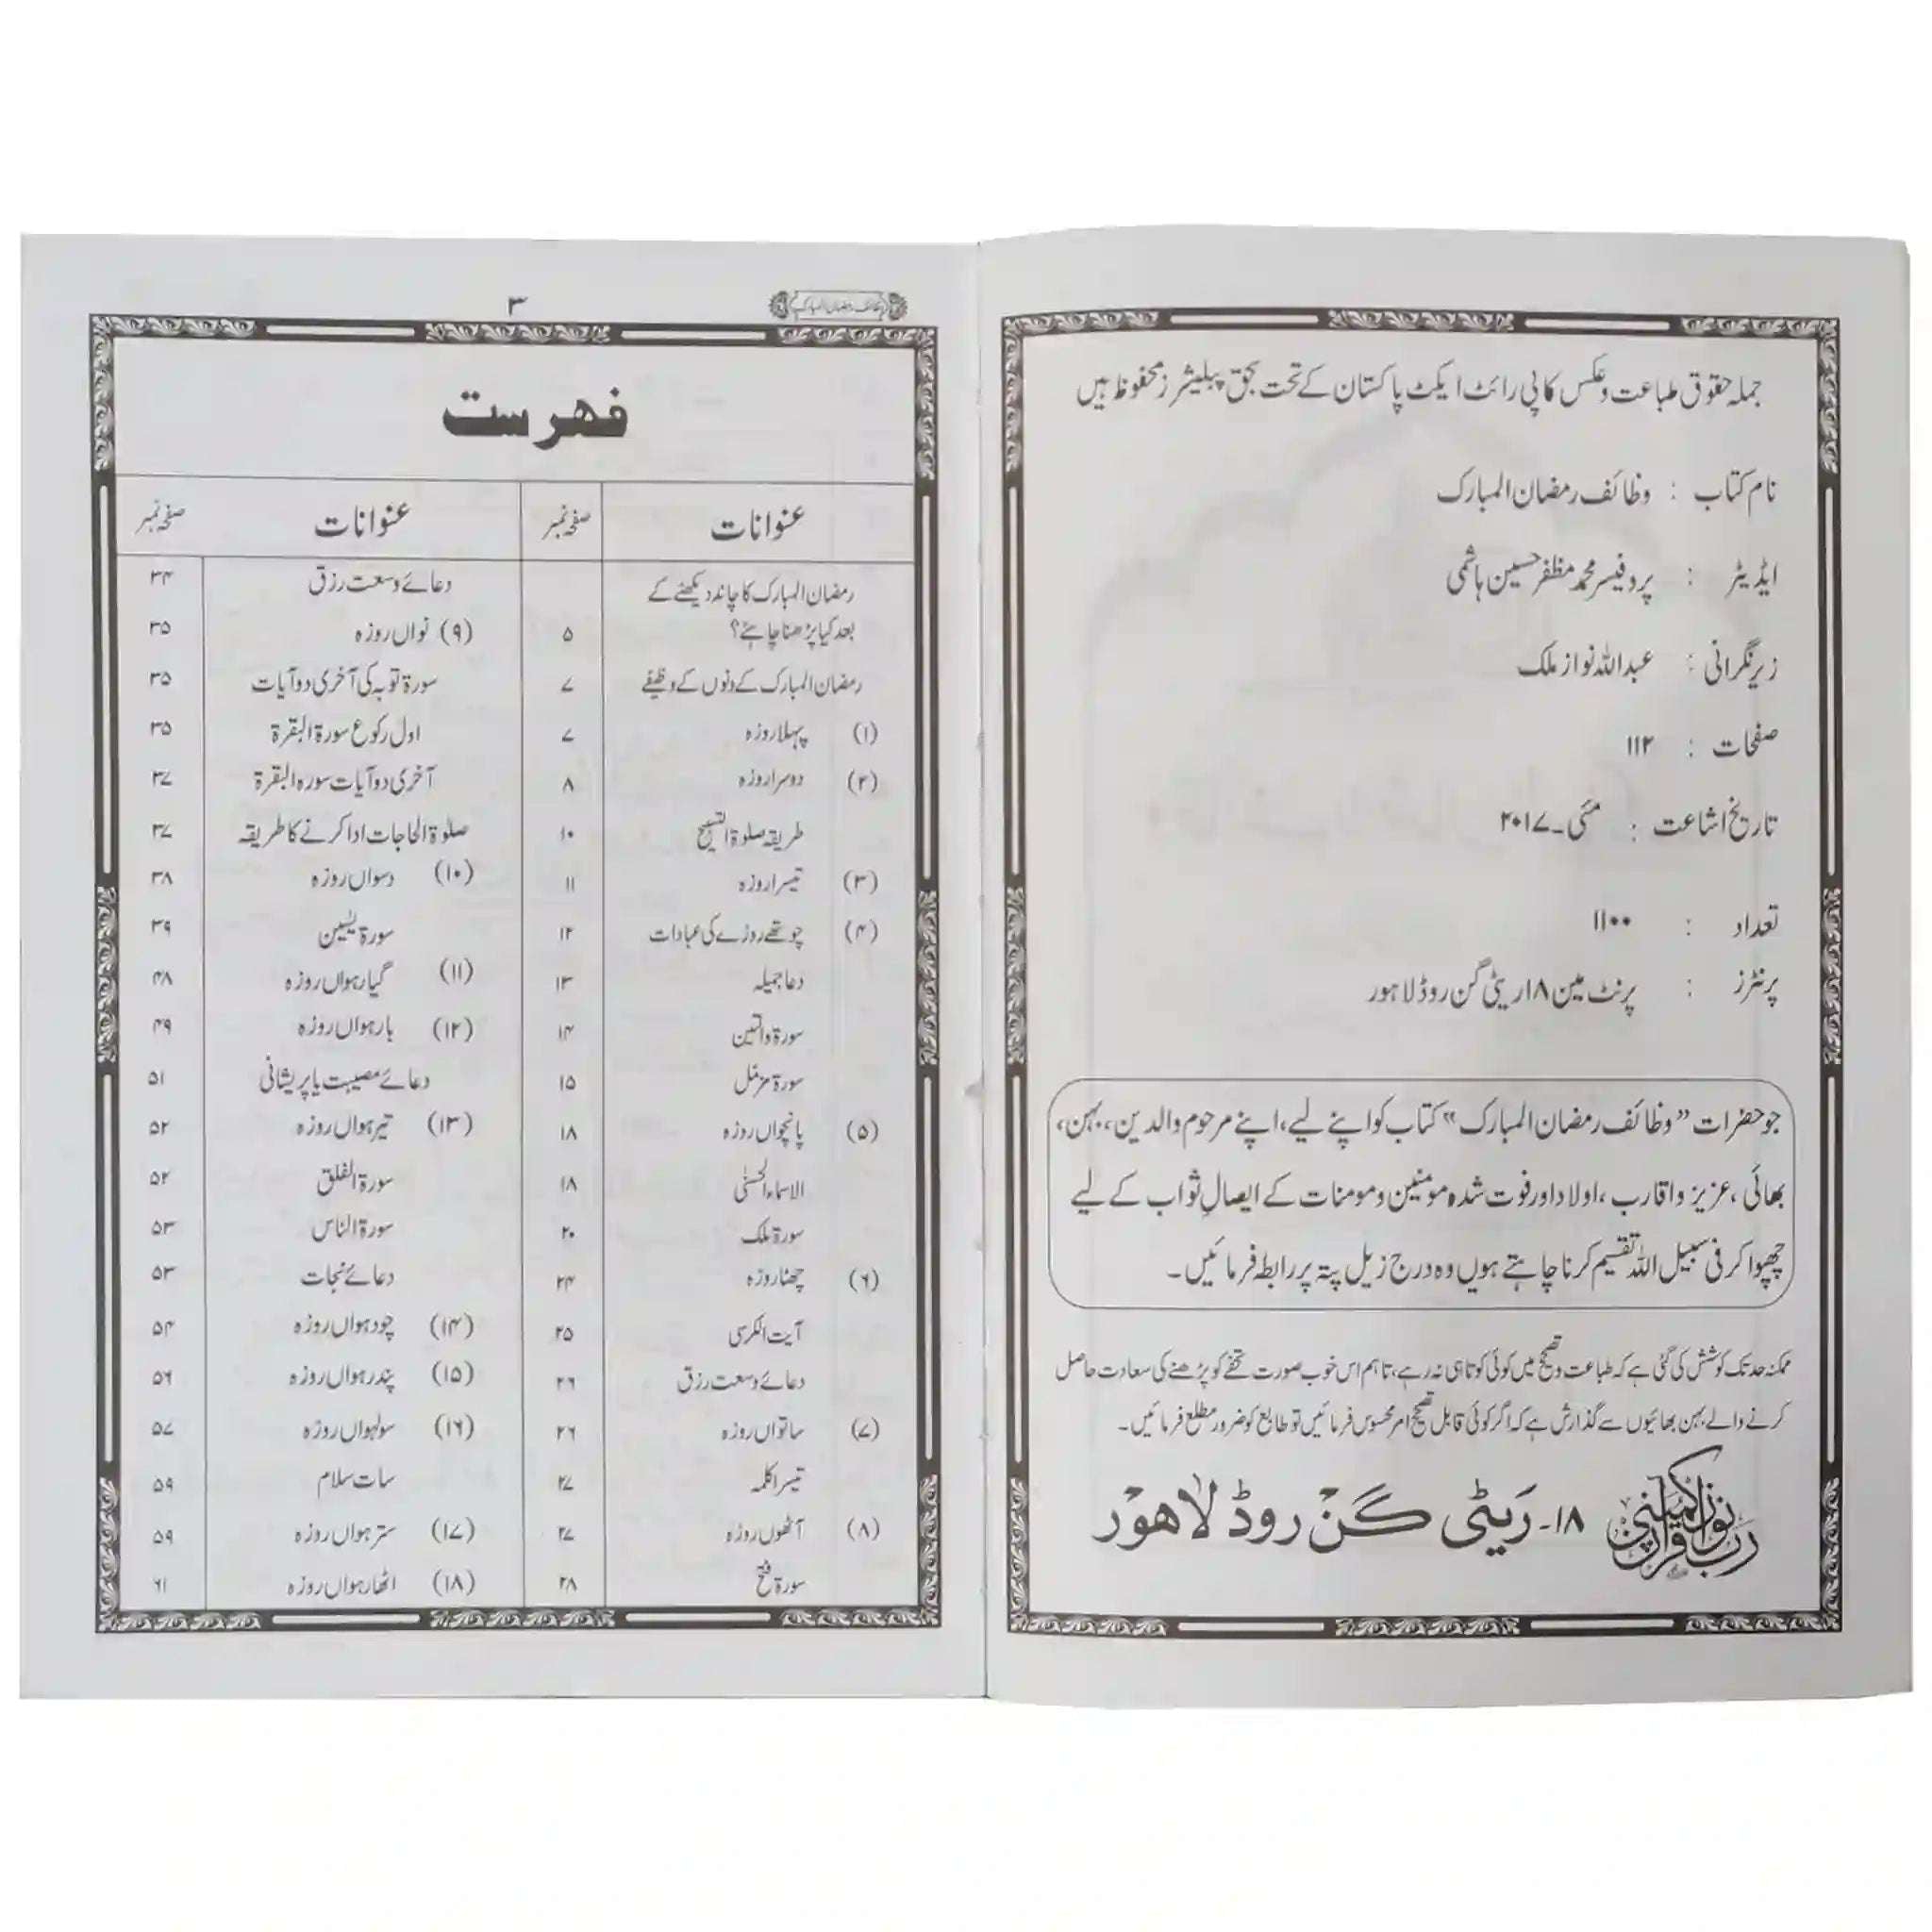 جملہ حقوق طباعت و عکس کاپی رائٹ ایکٹ پاکستان کے تحت بحق پبلیشرز محفوظ ہیں
نام کتاب : وظائف رمضان المبارک
ایڈیٹر : پروفیسر محمد مظفر حسین ہاشمی
زیر نگرانی : عبداللہ نواز ملک
صفحات : ۱۱۲
تاریخ اشاعت : مئی۔۲۰۱۷
تعداد : ۱۱۰۰
پرنٹرز : پرنٹ مین ۱۸ ریٹی گن روڈ لاہور
جو حضرات ”وظائف رمضان المبارک“ کتاب کو اپنے لیے، اپنے مرحوم والدین، بہن،
بھائی، عزیز واقارب، اولاد اور فوت شدہ مومنین و مومنات کے ایصالِ ثواب کے لیے
چھپوا کر فی سبیل اللہ تقسیم کرنا چاہتے ہوں وہ درج زیل پتہ پر رابطہ فرمائیں۔
ممکنہ حد تک کوشش کی گئی ہے کہ طباعت و تصحیح میں کوئی کوتاہی نہ رہے، تاہم اس خوب صورت تحفے کو پڑھنے کی سعادت حاصل
کرنے والے بہن بھائیوں سے گذارش ہے کہ اگر کوئی قابل تصحیح امر محسوس فرمائیں تو طابع کو ضرور مطلع فرمائیں۔
رب نواز قرآن کمپنی ۱۸۔ریٹی گن روڈ لاہور
وظائف رمضان المبارک
۳
فہرست
عنوانات صفحہ نمبر
رمضان المبارک کا چاند دیکھنے کے
بعد کیا پڑھنا چاہئے؟ ۵
رمضان المبارک کے دنوں کے وظیفے ۷
(۱) پہلا روزہ ۷
(۲) دوسرا روزہ ۸
طریقہ صلوۃ التسبیح ۱۰
(۳) تیسرا روزہ ۱۱
(۴) چوتھے روزے کی عبادات ۱۲
دعا جمیلہ ۱۳
سورۃ والتین ۱۴
سورۃ مزمل ۱۵
(۵) پانچواں روزہ ۱۸
الاسماء الحسنٰی ۱۸
سورۃ ملک ۲۰
(۶) چھٹا روزہ ۲۴
آیت الکرسی ۲۵
دعائے وسعت رزق ۲۶
(۷) ساتواں روزہ ۲۶
تیسرا کلمہ ۲۷
(۸) آٹھوں روزہ ۲۷
سورۃ فتح ۲۸
عنوانات صفحہ نمبر
دعائے وسعت رزق ۳۴
(۹) نواں روزہ ۳۵
سورۃ توبہ کی آخری دو آیات ۳۵
اول رکوع سورۃ البقرۃ ۳۵
آخری دو آیات سورہ البقرۃ ۳۷
صلوۃ الحاجات ادا کرنے کا طریقہ ۳۷
(۱۰) دسواں روزہ ۳۸
سورۃ یٰسین ۳۹
(۱۱) گیارہواں روزہ ۴۸
(۱۲) بارہواں روزہ ۴۹
دعائے مصیبت یا پریشانی ۵۱
(۱۳) تیرہواں روزہ ۵۲
سورۃ الفلق ۵۲
سورۃ الناس ۵۳
دعائے نجات ۵۳
(۱۴) چودہواں روزہ ۵۴
(۱۵) پندرہواں روزہ ۵۶
(۱۶) سولہواں روزہ ۵۷
سات سلام ۵۹
(۱۷) سترہواں روزہ ۵۹
(۱۸) اٹھارہواں روزہ ۶۱